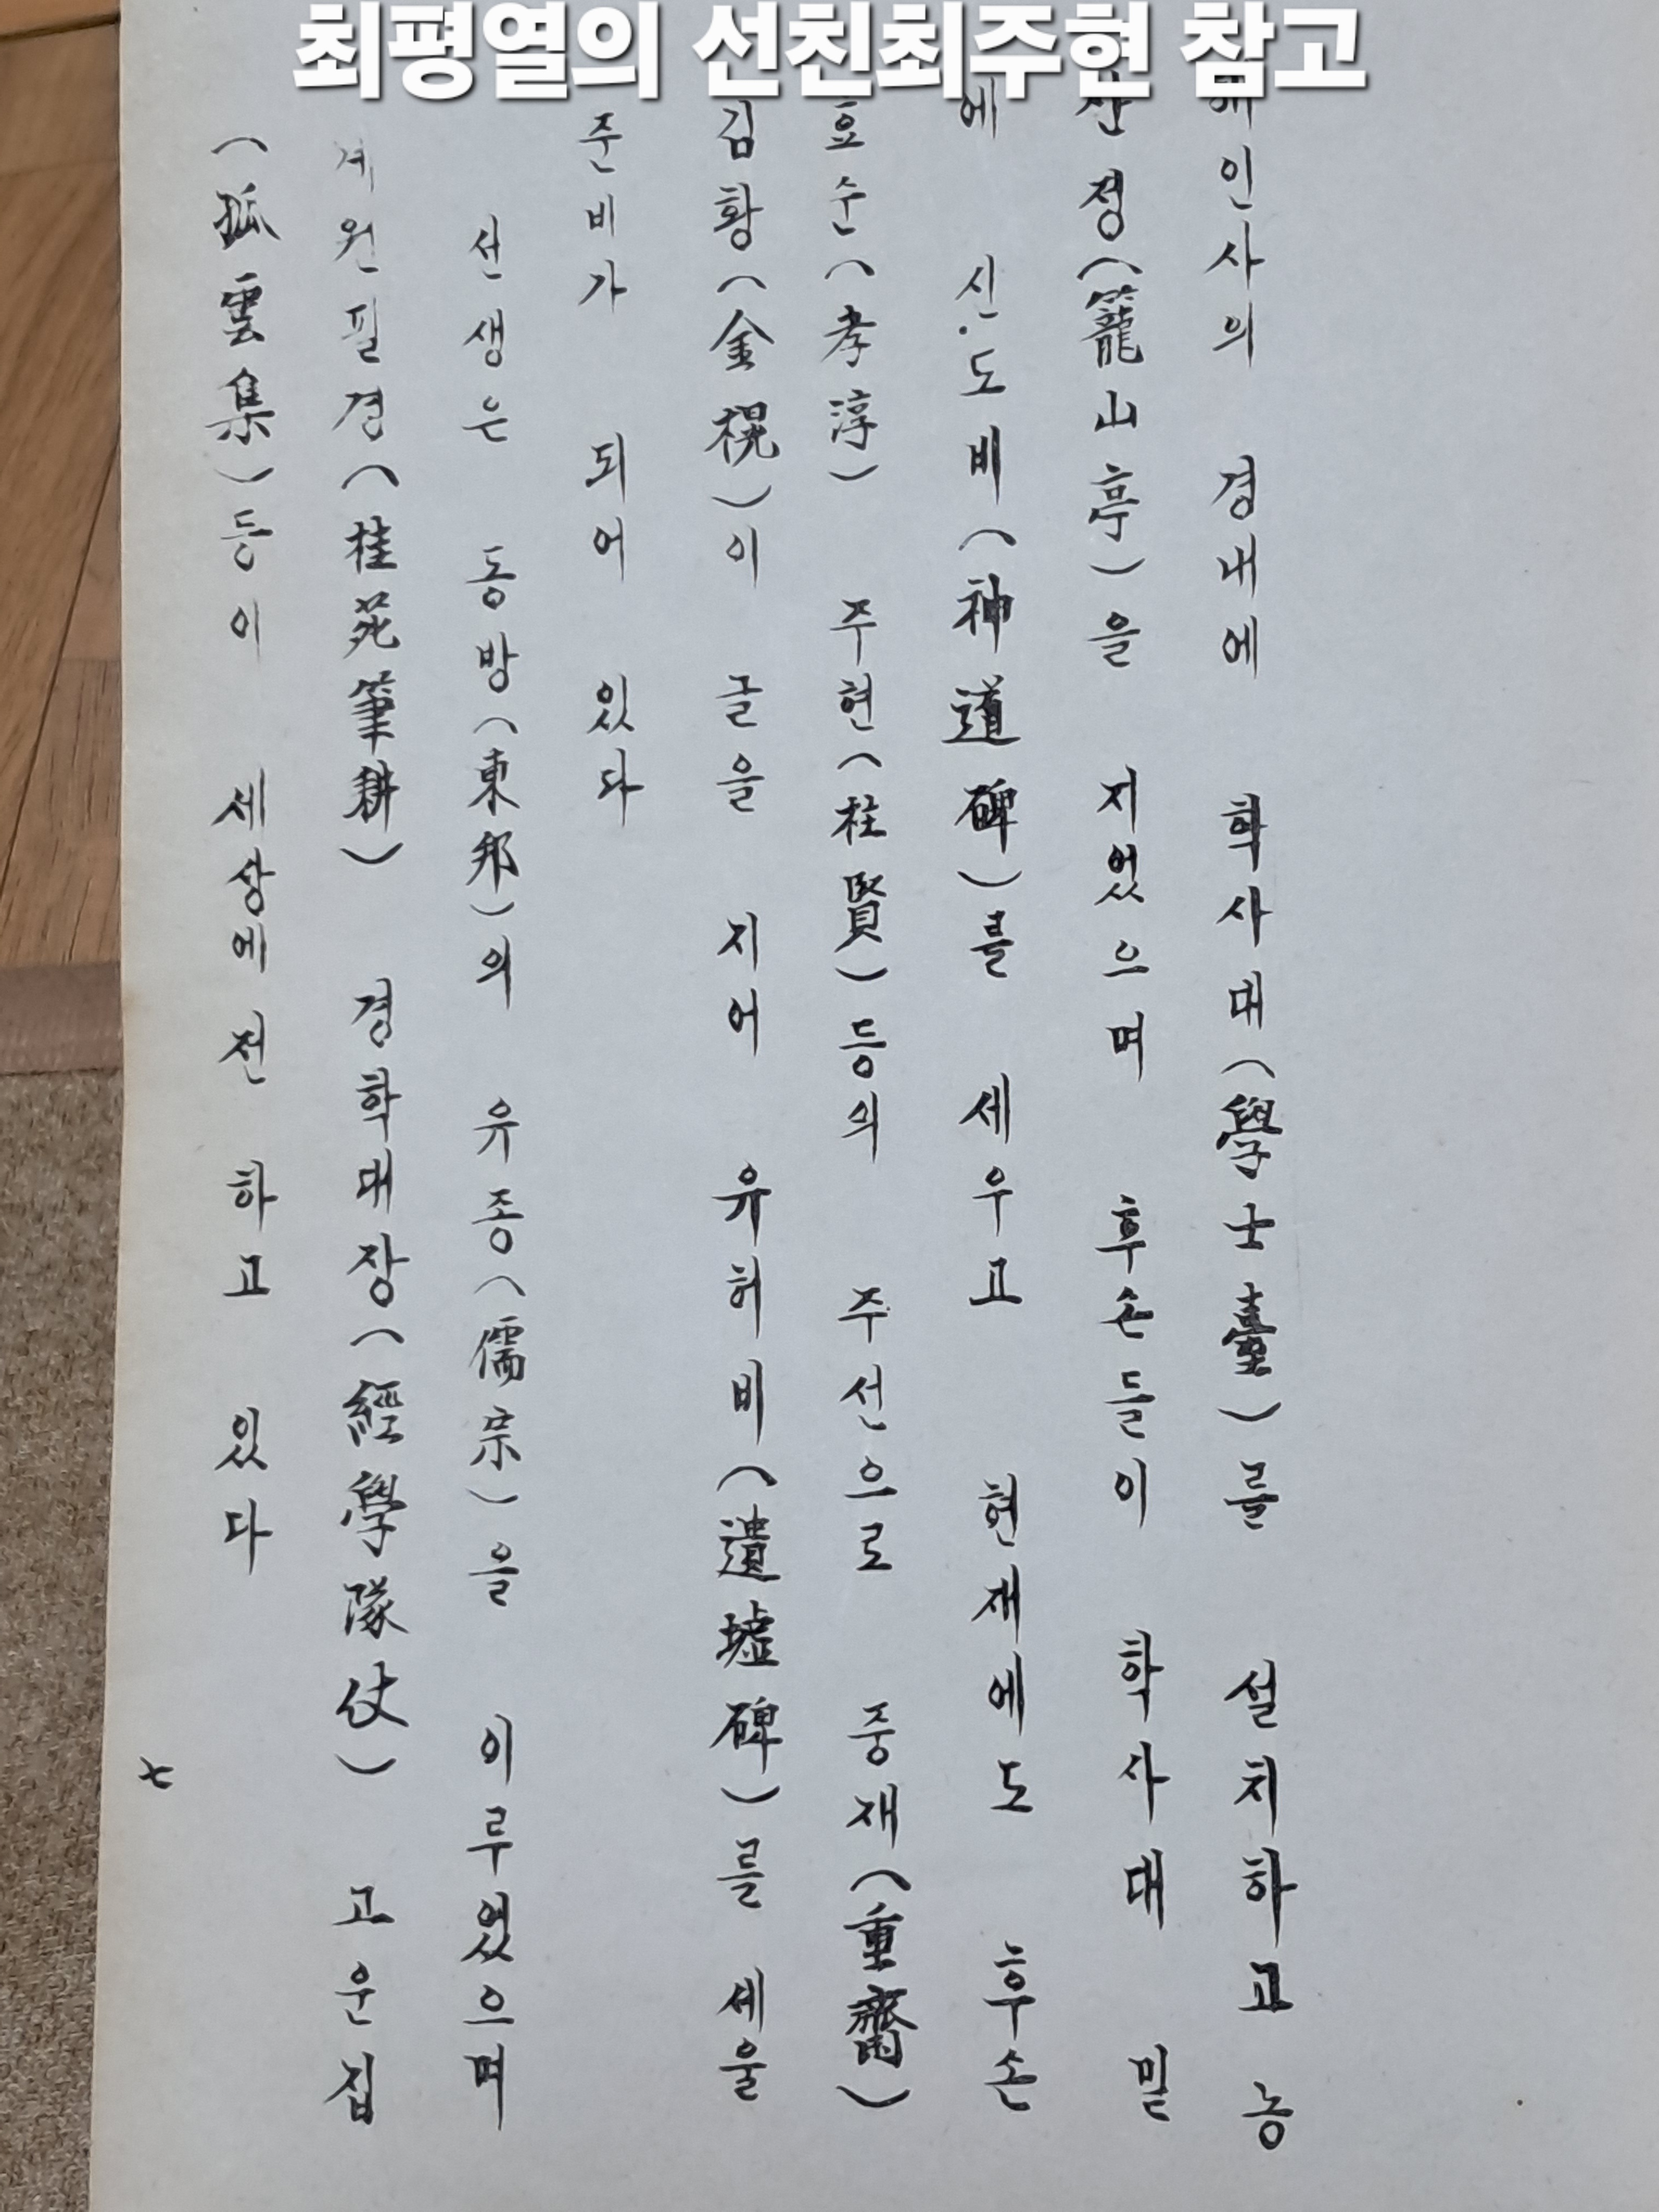 최평열의 선친최주현 참고
해인사의 경내에 학사대(學士臺)를 설치하고 농
산정(籠山亭)을 지었으며 후손들이 학사대 밑
에 신도비(神道碑)를 세우고 현재에도 후손
효순(孝淳) 주현(柱賢)등의 주선으로 중재(重齋)
김황(金榥)이 글을 지어 유허비(遺墟碑)를 세울
준비가 되어 있다
선생은 동방(東邦)의 유종(儒宗)을 이루었으며
계원필경(桂苑筆耕) 경학대장(經學隊仗) 고운집
(孤雲集)등이 세상에 전하고 있다
七